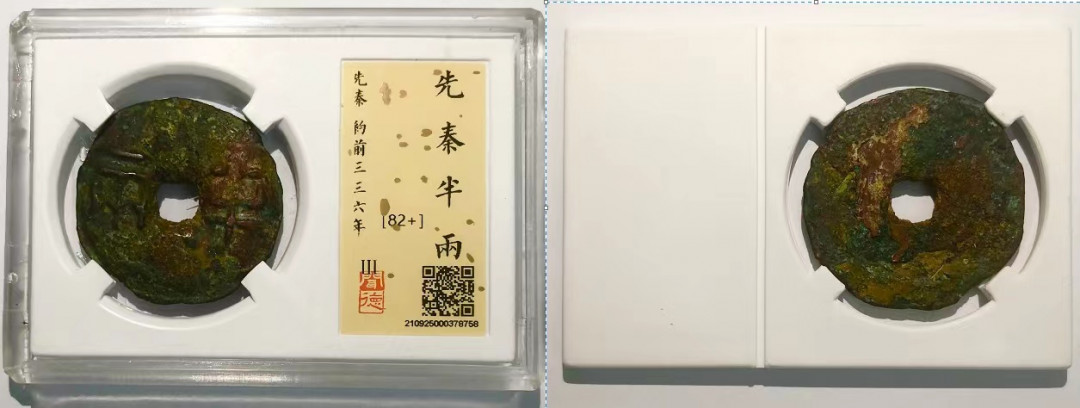 先秦半兩
先秦 約前三三六年
[82+]
III
聞德
210925000378758
半兩